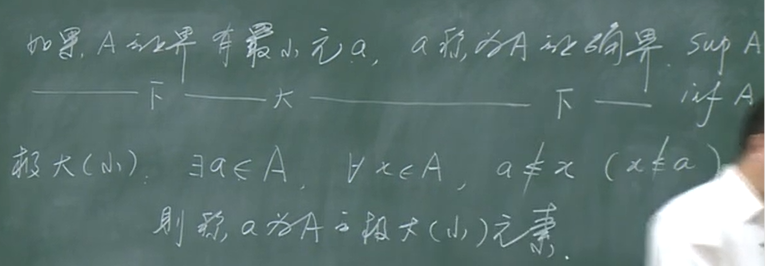 如果 A 上界有最小元 a, a 称为 A 上确界. sup A
—— 下 —— 大 —— 下 —— inf A
极大(小). ∃a∈A, ∀x∈A, a≮x (x≮a)
则称 a 为 A 之极大(小)元素.